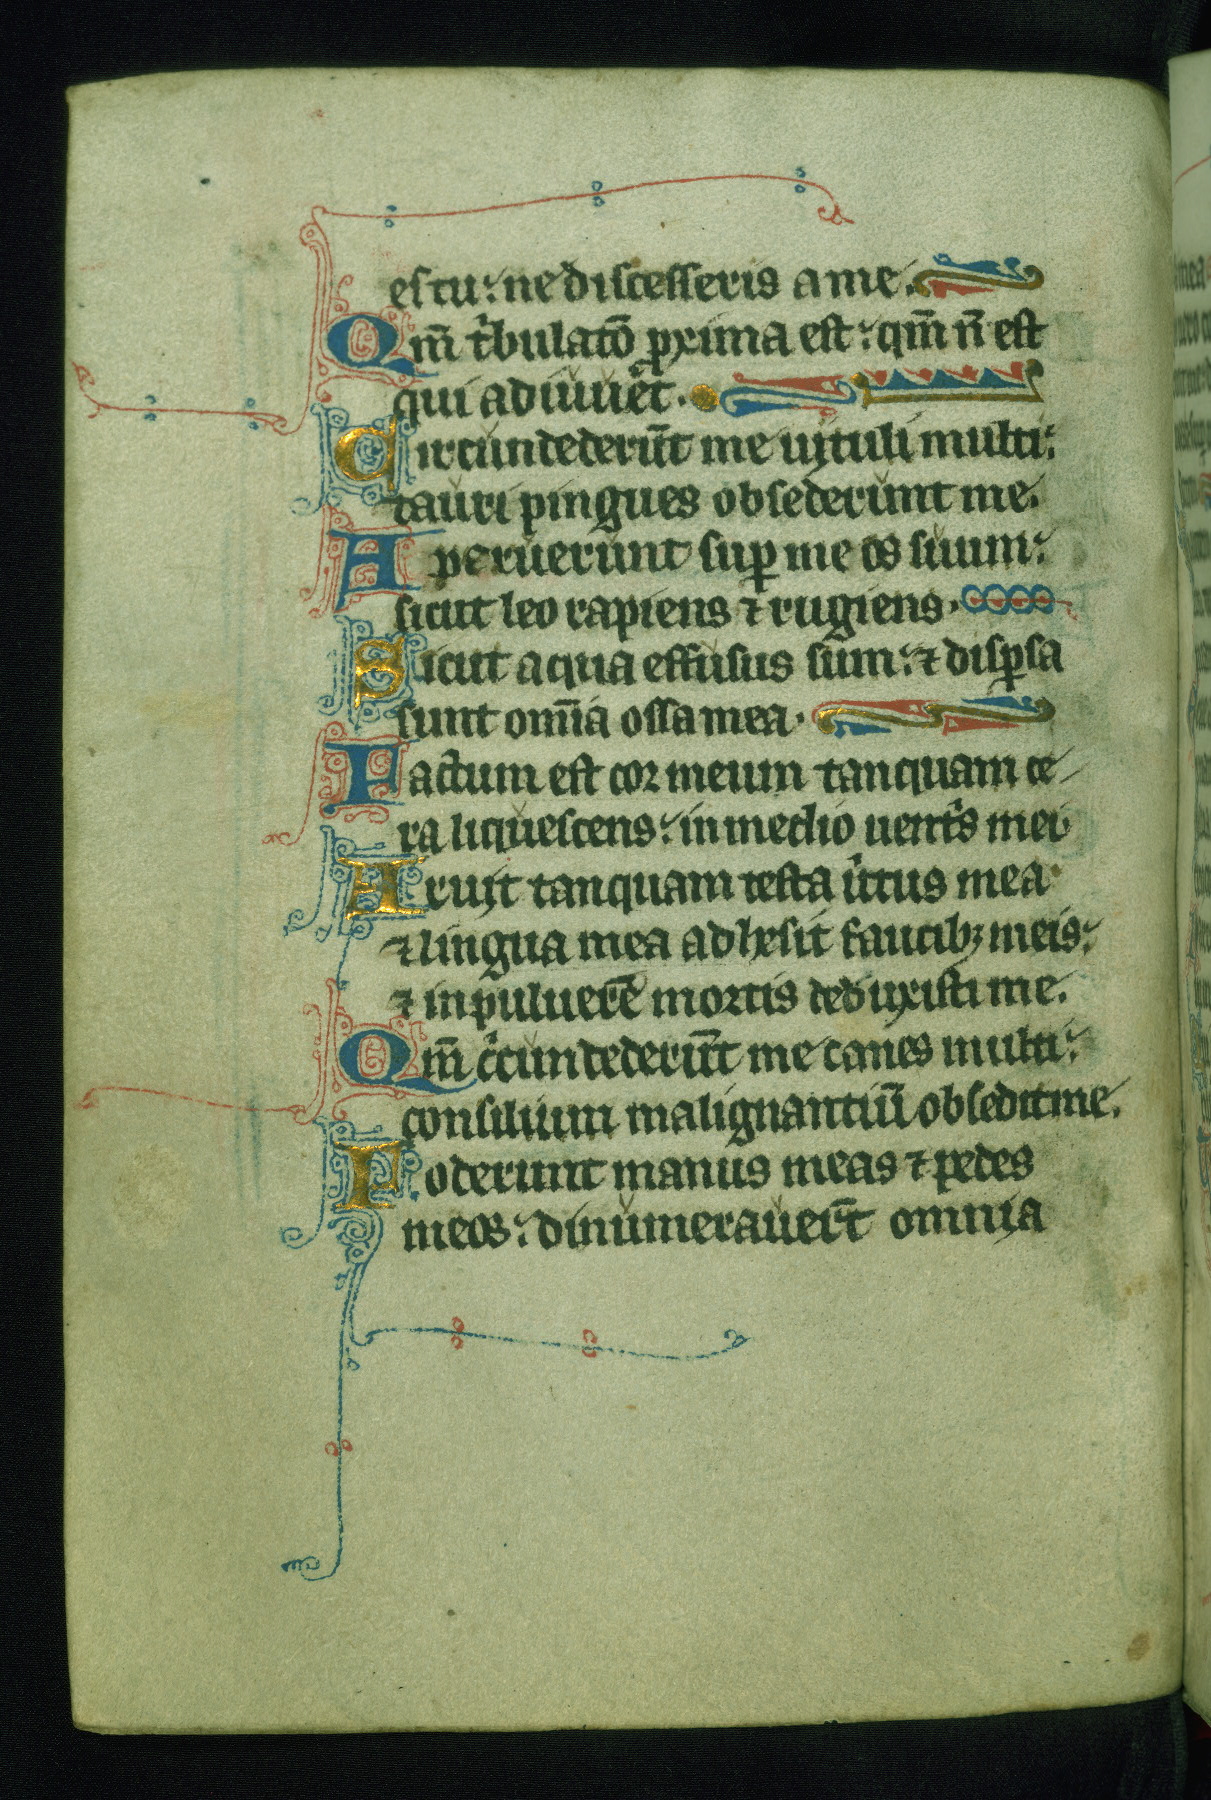 es tu: ne discesseris a me.
Qm̄ tⁱbulatō ꝓxima est: qm̄ n̄ est
qui adiuuet.
Circundederūt me uituli multi:
tauri pingues obsederunt me.
Aperuerunt suꝑ me os suum:
sicut leo rapiens ⁊ rugiens.
Sicut aqua effusus sum: ⁊ disꝑsa
sunt om̄ia ossa mea.
Factum est cor meum tanquam ce
ra liquescens: in medio uentⁱs mei
Aruit tanquam testa uⁱtus mea
⁊ lingua mea adhesit faucibꝫ meis:
⁊ in puluerē mortis deduxisti me.
Qm̄ cⁱcundederūt me canes multi:
consilium malignantiū obsedit me.
Foderunt manus meas ⁊ pedes
meos: dinumerauerūt omnia